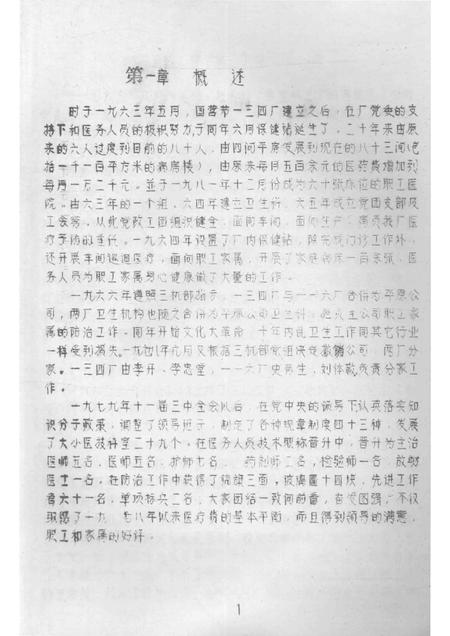 第一章 概 述
时于一九六三年五月，国营第一三四厂建立之后，在厂党委的支
持下和医务人员的积极努力，于同年六月保健站诞生了。二十年来由原
来的六人过度到目前的八十人，由四间平房发展到现在的八十三间（包
括一千一百平方米的病房楼），由原来每月五百余元的医药费增加到
每月一万二千元。並于一九八一年十二月份成为六十张床位的职工医
院。由六三年的一个组，六四年建立卫生科，六五年成立党团支部及
工会等，从此党政工团组织健全，面向车间，面向生产，担负我厂医
疗予防的重任。一九六四年设置了厂内保健站，除完成门诊工作外，
还开展车间巡迴医疗，面向职工家属，开展了家庭病床一百余张，医
务人员为职工家属身心健康做了大量的工作。
一九六六年遵照三机部指示，一三四厂与一一六厂合併为平原公
司，两厂卫生机构也随之合併为平原公司卫生科，担负主公司职工家
属的防治工作。同年开始文化大革命，十年内乱卫生工作同其它行业
一样受到损失。一九七 年六月又根据三机部党组决定撤销公司，两厂分
家。一三四厂由李开、李忠堂，一一六厂史秀生，刘体 负责分家工
作。
一九七九年十一届三中全会以后，在党中央的领导下认真落实知
识分子政策，调整了领导班子，制定了各种规章制度四十三种，发展
了大小医技科室二十九个。在医务人员技术职称晋升中，晋升为主治
医师五名，医师五名，护师七名， 药剂师二名，检验师一名，放射
医士一名。在防治工作中获得了锦旗三面，玻璃匾十四块，先进工作
者六十一名，单项标兵二名，大家团结一致向前看，奋发图强，不仅
取得了一九七八年以来医疗费的基本平衡，而且得到领导的满意，
职工和家属的好评。
1